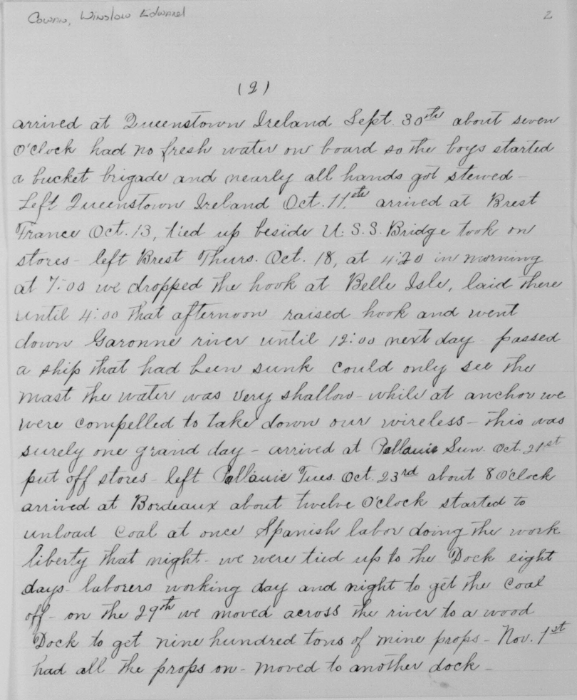 Cowin, Winslow Edward 2
(2)
arrived at Queenstown Ireland Sept. 30th about seven
O'clock had no fresh water on board so the boys started
a bucket brigade and nearly all hands got stewed -
Left Queenstown Ireland Oct. 11th arrived at Brest
France Oct. 13, tied up beside U.S.S. Bridge took on
stores - left Brest Thurs. Oct. 18, at 4:20 in morning
at 7:00 we dropped the hook at Belle Isle, laid there
until 4:00 that afternoon raised hook and went
down Garonne river until 12:00 next day - passed
a ship that had been sunk could only see the
mast the water was very shallow - while at anchor we
were compelled to take down our wireless - this was
surely one grand day - arrived at Pollauic Sun. Oct. 21st
put off stores - left Pollauic Tues. Oct. 23rd about 8 O'clock
arrived at Bordeaux about twelve O'clock started to
unload coal at once Spanish labor doing the work
liberty that night - we were tied up to the Dock eight
days - laborers working day and night to get the coal
off - on the 29th we moved across the river to a wood
Dock to get nine hundred tons of mine props - Nov. 1st
had all the props on - moved to another dock -